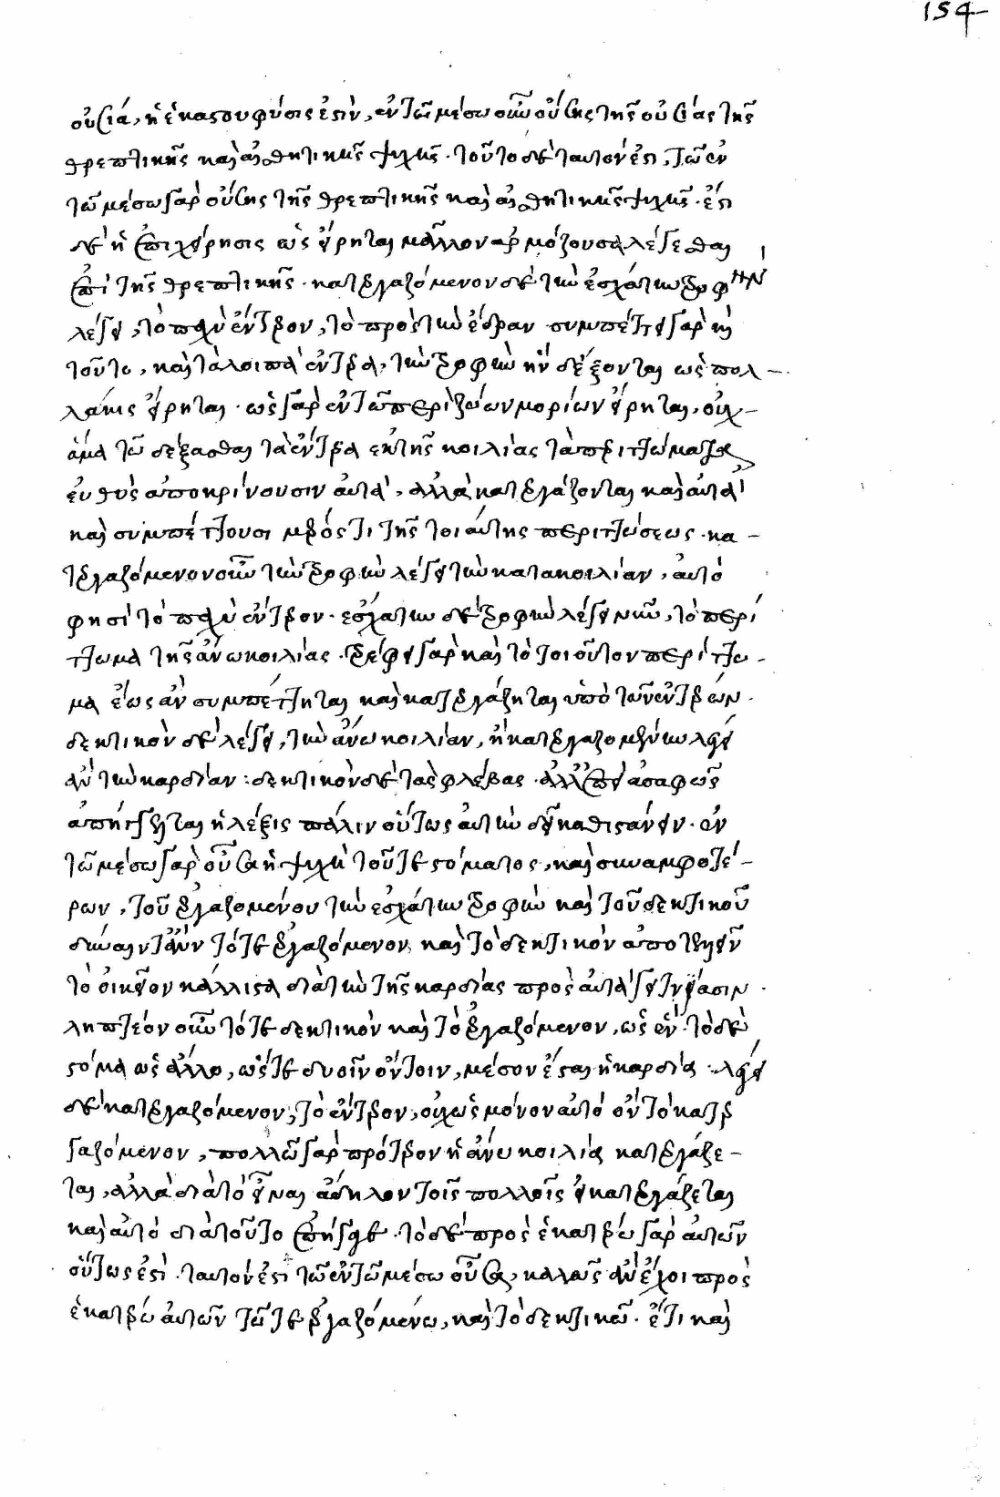 154
οὐσία, ἡ ἑκάστου φύσις ἐστὶν, ἐν τῷ μέσῳ οὖν οὔσης τῆς οὐσίας τῆς
θρεπτικῆς καὶ αἰσθητικῆς ψυχῆς. τοῦτο δὲ ταυτόν ἐστι, τῷ ἐν
τῷ μέσῳ γὰρ οὔσης τῆς θρεπτικῆς καὶ αἰσθητικῆς ψυχῆς. ἔστι
δὲ ἡ ἐπιχείρησις ὡς εἴρηται μᾶλλον ἁρμόζουσα λέγεσθαι
ἐπὶ τῆς θρεπτικῆς. κατεργαζόμενον δὲ τὴν ἐσχάτην τροφὴν
λέγει, τὸ παχὺ ἔντερον, τὸ πρὸς τὴν ἕδραν. συμπέττει γὰρ καὶ
τοῦτο, καὶ τὰ λοιπὰ ἔντερα, τὴν τροφὴν ἣν δέξονται ὡς πολ-
λάκις εἴρηται. ὡς γὰρ ἐν τῷ περὶ ζώων μορίων εἴρηται, οὐχ-
ἅμα τῷ δέξασθαι τὰ ἔντερα ἐκ τῆς κοιλίας τὰ περιττώματα
εὐθὺς ἀποκρίνουσιν αὐτά, ἀλλὰ κατεργάζονται καὶ αὐτὰ
καὶ συμπέττουσι μέρος τι τῆς τοιαύτης περιττώσεως. κα-
τεργαζόμενον οὖν τὴν τροφὴν λέγει τὴν κάτω κοιλίαν, αὐτό
φησι τὸ παχὺ ἔντερον. ἐσχάτην δὲ τροφὴν λέγει νῦν, τὸ περί
ττωμα τῆς ἄνω κοιλίας. τρέφει γὰρ καὶ τὸ τοιοῦτον περίττω-
μα ἕως ἂν συμπέττηται καὶ κατεργάζηται ὑπὸ τῶν ἐντέρων.
δεκτικὸν δὲ λέγει, τὴν ἄνω κοιλίαν, ἢ κατεργαζομένην λέγει
ἂν τὴν καρδίαν: δεκτικὸν δὲ τὰς φλέβας. ἀλλ' ἐπεὶ ἀσαφῶς
ἀπήγγελται ἡ λέξις πάλιν οὕτως αὐτὴν δεῖ καθιστάνειν. ἐν
τῷ μέσῳ γὰρ οὖσα ἡ ψυχὴ τοῦ τε στόματος, καὶ συναμφοτέ-
ρων, τοῦ ἐργαζομένου τὴν ἐσχάτην τροφὴν καὶ τοῦ δεκτικοῦ
δύναιντ' ἂν τό τε ἐργαζόμενον καὶ τὸ δεκτικὸν ἀποτελεῖν
τὸ οἰκεῖον κάλλιστα διὰ τὴν τῆς καρδίας πρὸς αὐτὰ γειτνίασιν.
ληπτέον οὖν τό τε δεκτικὸν καὶ τὸ ἐργαζόμενον, ὡς ἕν. τὸ δὲ
στόμα ὡς ἄλλο, ὥστε δυοῖν ὄντοιν, μέσον ἔσται ἡ καρδία. λέγει
δὲ κατεργαζόμενον, τὸ ἔντερον, οὐχ ὡς μόνον αὐτὸ ὂν τὸ κατερ
γαζόμενον, πολλῷ γὰρ πρότερον ἡ ἄνω κοιλία κατεργάζε-
ται, ἀλλὰ διὰ τὸ εἶναι ἄδηλον τοῖς πολλοῖς εἰ κατεργάζεται
καὶ αὐτὸ διὰ τοῦτο ἐπήγαγε. τὸ δὲ πρὸς ἑκατέρῳ γὰρ αὐτῶν
οὕτως ἐστὶ. ταυτόν ἐστι τῷ ἐν τῷ μέσῳ οὖσα, καλῶς ἂν ἔχοι πρὸς
ἑκατέρῳ αὐτῶν τῷ τε ἐργαζομένῳ, καὶ τὸ δεκτικῷ. ἔτι καὶ